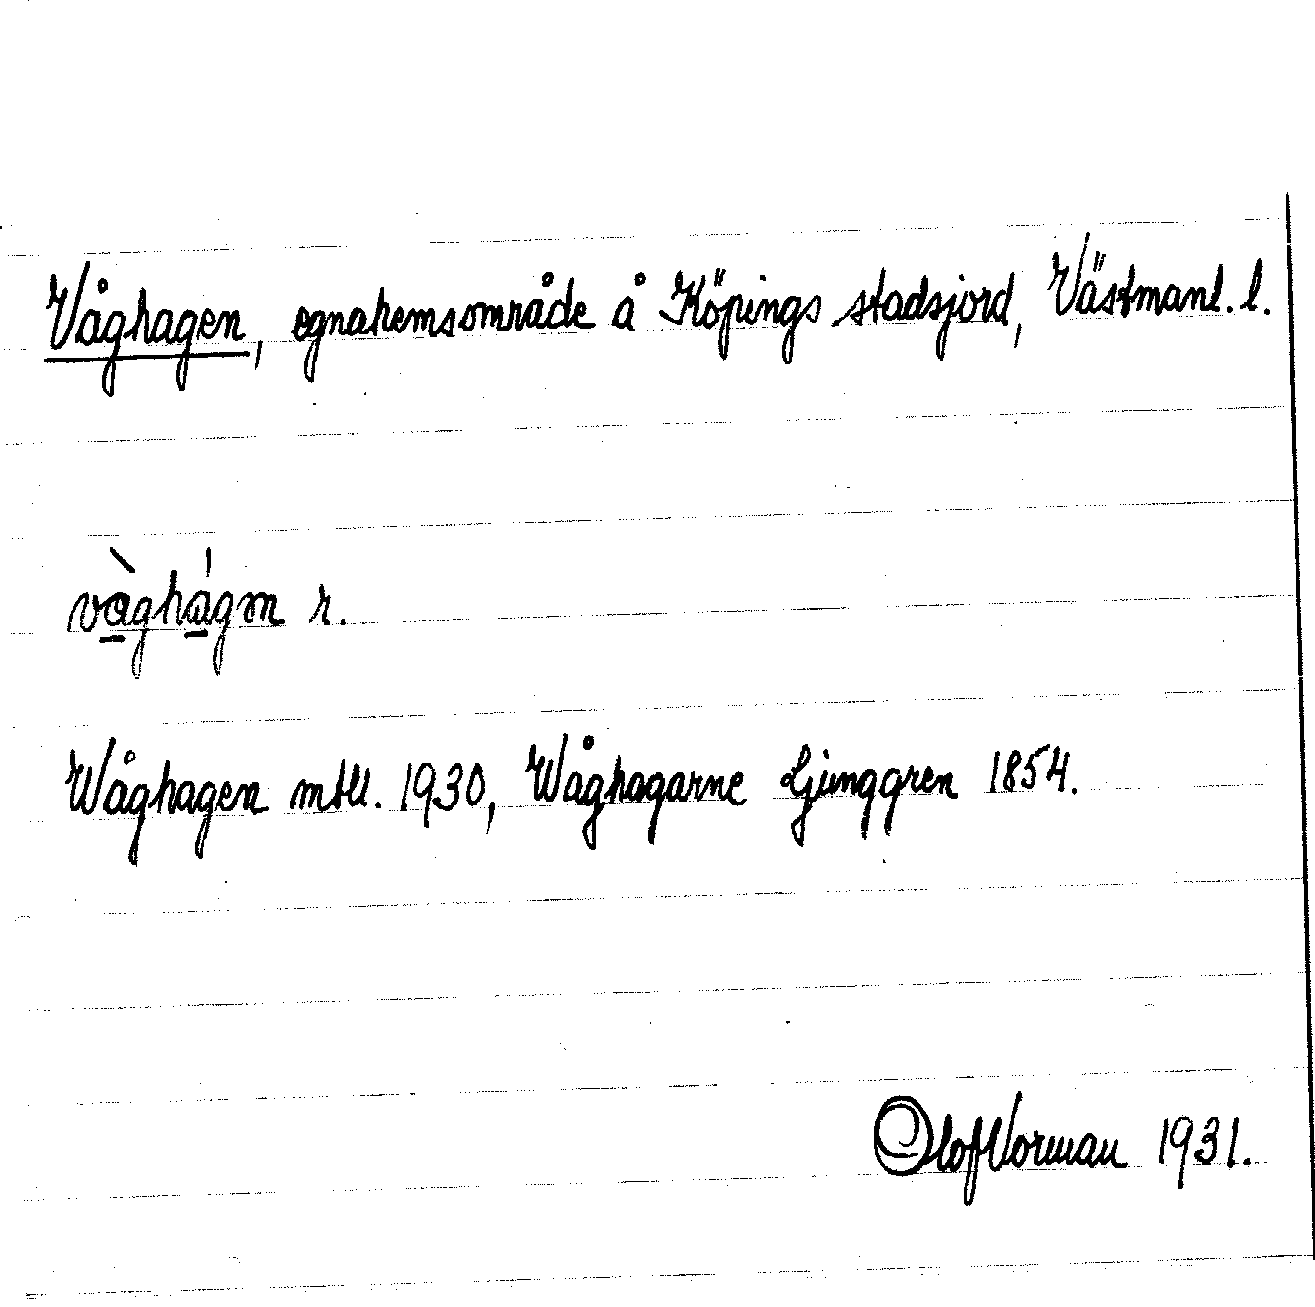 Våghagen, egnahemsområde å Köpings stadsjord, Västmanl. l.
vàghágen r.
Wåghagen mtll. 1930, Wåghagarne Ljunggren 1854.
Olof Vorman 1931.